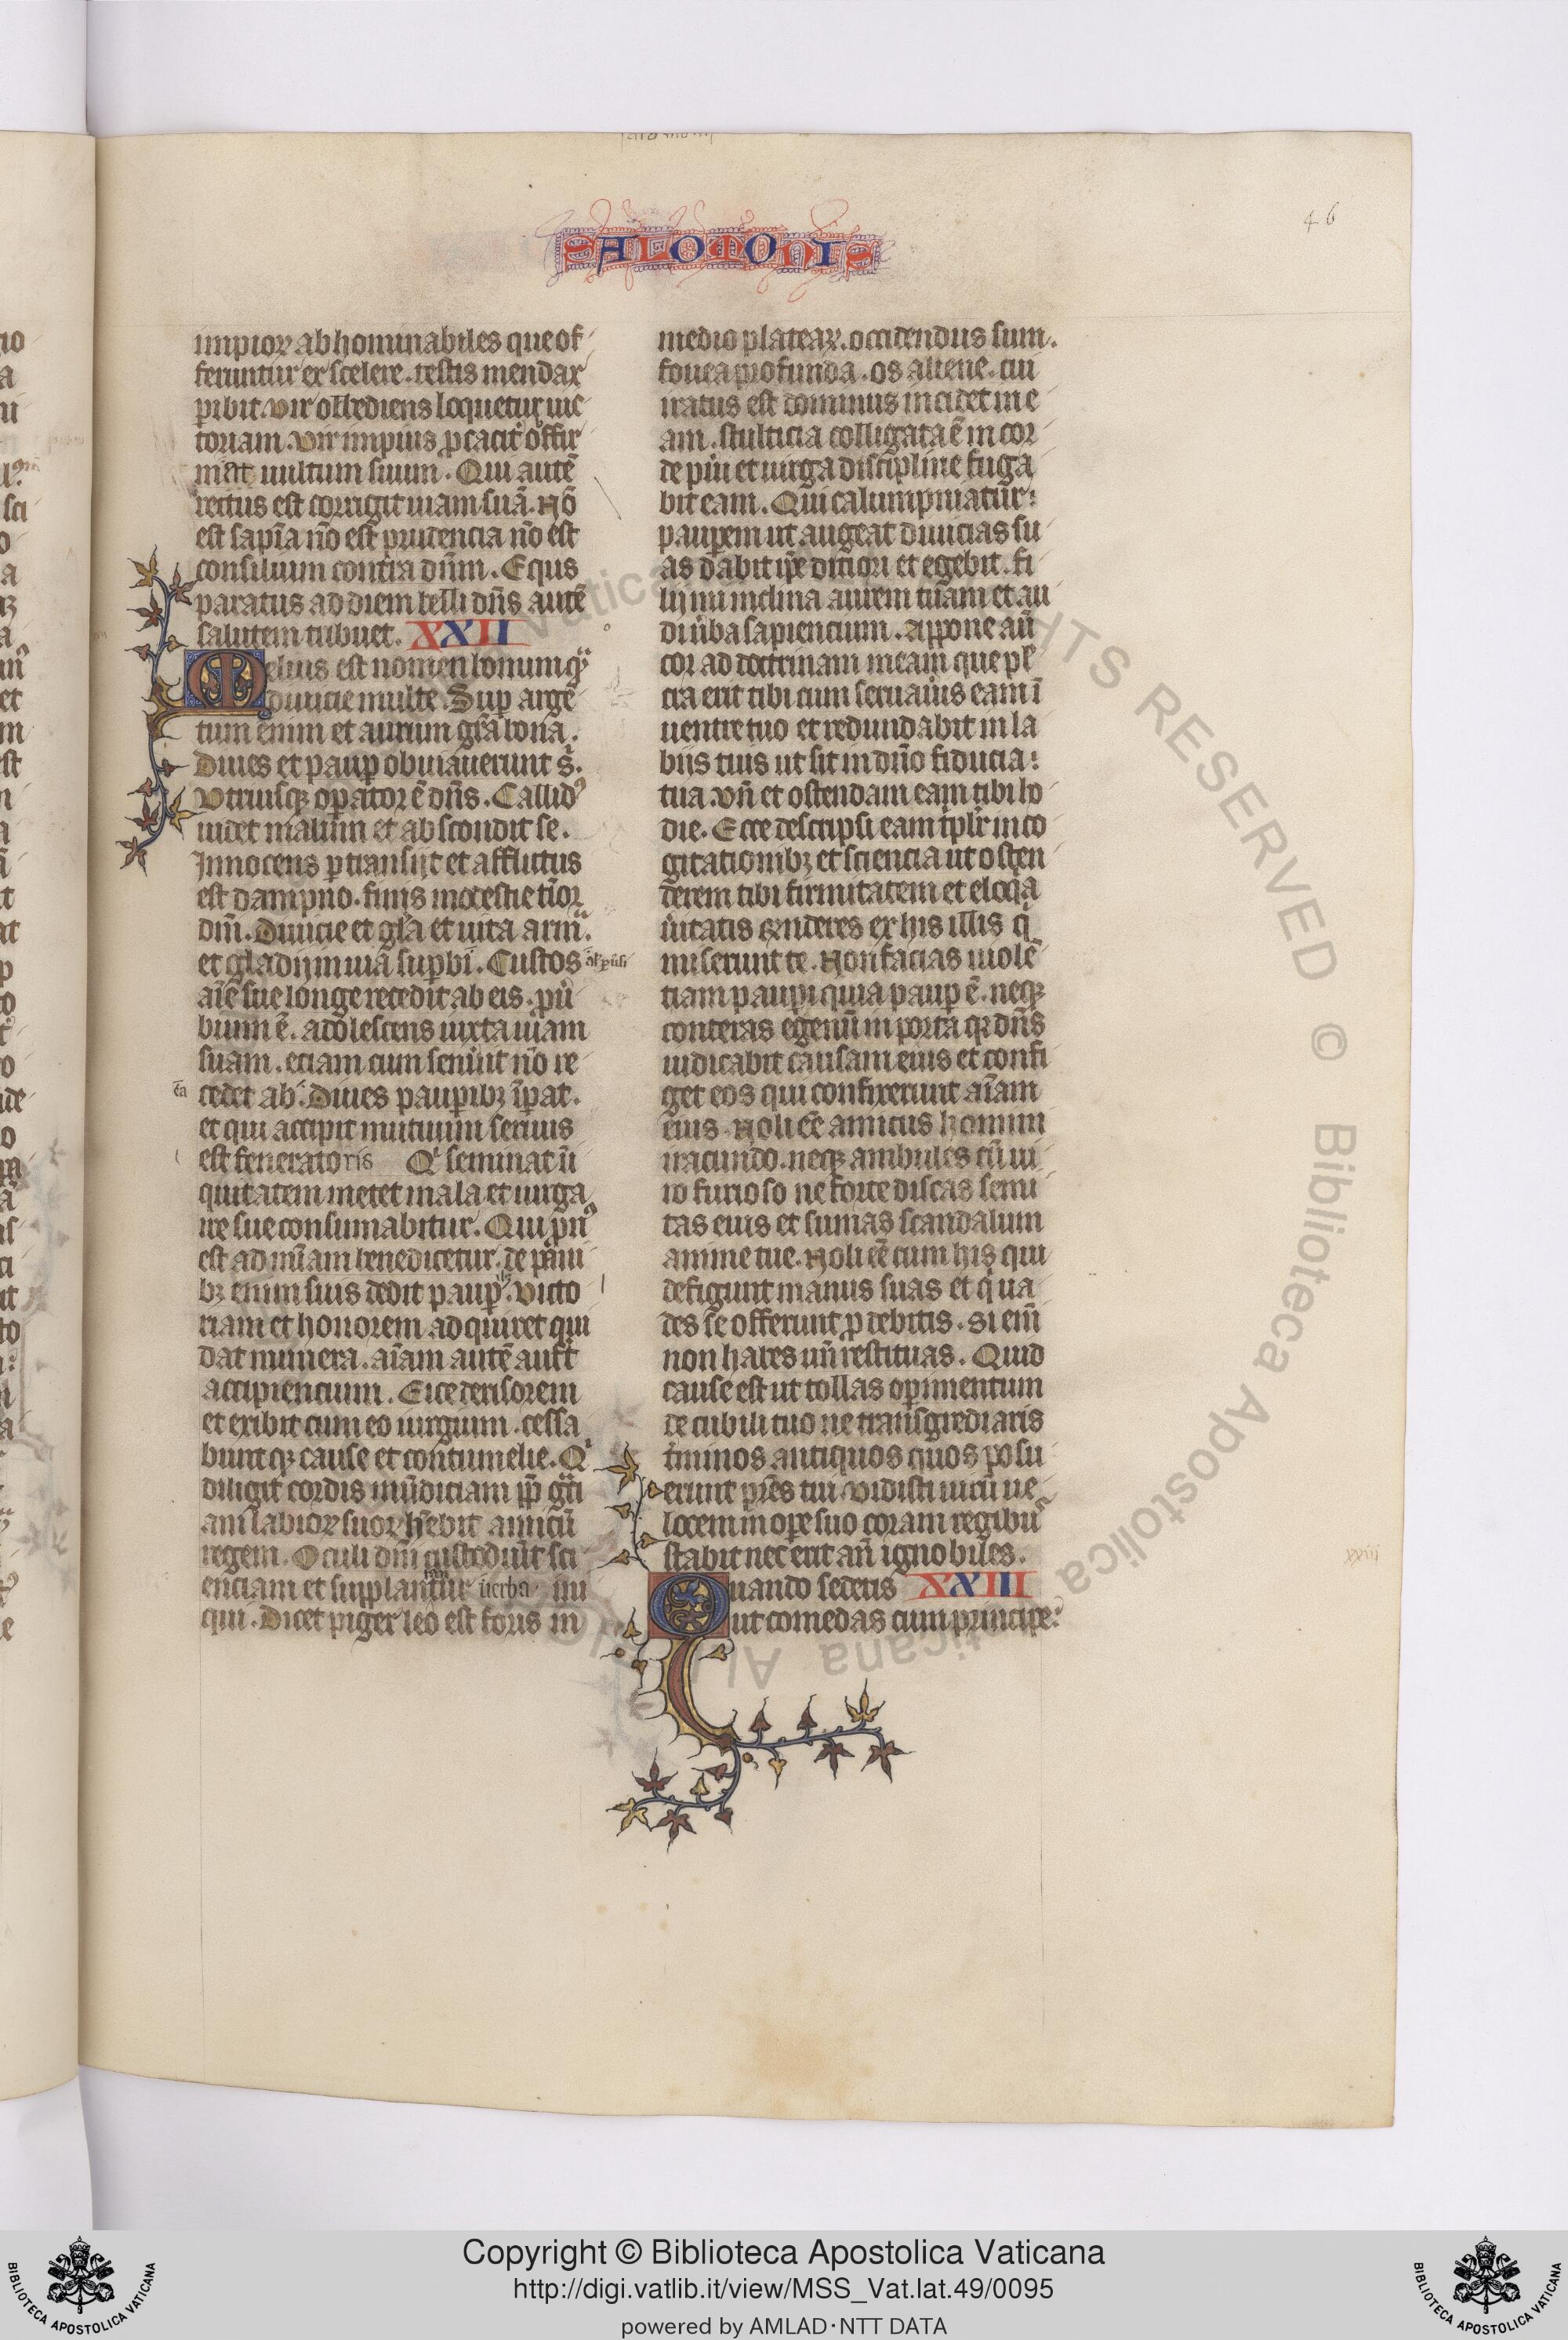 46
SALOMONIS
impioꝝ abhominabiles que of
feruntur ex scelere. testis mendax
ꝑibit. vir obediens loquetur uic
toriam. Vir impius ꝓcacit̉ offir
mat uultum suum. Qui autē
rectus est corrigit uiam suā. Nō
est sapīa nō est prudencia nō est
consilium contra dn̄m. Equs
paratus ad diem belli dn̄s autē
salutem tribuet. XXII
Melius est nomen bonum qͣ
diuicie multe. Suꝑ argē
tum enim et aurum gr̄a bona.
Diues et pauꝑ obuiauerunt s̉.
Vtriusqꝫ oꝑator ē dn̄s. Callidꝰ
uidet malum et abscondit se.
Innocens ꝑtransijt et afflictus
est dampno. finis modestie tīor
dn̄i. Diuicie et gl̄a et uita arm̄
et gladij in uiā suꝑbi. Custos
aīe sue longe recedit ab eis. ꝓủ
bium ē. adolescens iuxta uiam
suam. eciam cum senủit nō re
cedet ab ea. Diues pauꝑibꝫ īꝑat.
et qui accipit mutuum seruus
est feneratoris Qͥ seminat ī
quitatem metet mala et uirga
ire sue consumabitur. Qui pn̄ꝰ
est ad mīam benedicetur. de panī
bꝫ enim suis dedit pauꝑi. Victo
riam et honorem adquiret qui
dat munera. aīam autē aufert
accipiencium. Eice derisorem
et exibit cum eo iurgium. cessa
buntqꝫ cause et contumelie. Qͥ
diligit cordis mūdiciam ꝓp̄ gr̄a
am labioꝝ suoꝝ hēbit amicū
regem. Oculi dn̄i custodiūt sci
enciam et supplantantur uerba ini
qui. Dicet piger leo est foris in
medio plateaꝝ. occidendus sum.
fouea profunda. os aliene. cui
iratus est dominus incidet in e
am. stulticia colligata ē in cor
de pủi et uirga discipline fuga
bit eam. Qui calumpniatur
pauꝑem ut augeat diuicias su
as dabit ip̄e diciori et egebit. fi
lij mi inclina aurem tuam et au
di ủba sapiencium. Appone aū
cor ad doctrinam meam que pul
cra erit tibi cum seruaủis eam ī
uentre tuo et redundabit in la
biis tuis ut sit in dn̄o fiducia
tua. Vn̄ et ostendam eam tibi ho
die. Ecce descripsi eam tpl̄r in co
gitationibꝫ et sciencia ut osten
derem tibi firmitatem et eloqͥa
ủitatis ꝛn̄deres ex his illis qͥ
miserunt te. Non facias uiolē
tiam pauꝑi quia pauꝑ ē. neqꝫ
conteras egenū in porta qꝛ dn̄s
iudicabit causam eius et confi
get eos qui confixerunt aīam
eius. Noli eē amicus homini
iracundo. neqꝫ ambules cū ui
ro furioso ne forte discas semi
tas eius et sumas scandalum
anime tue. Noli eē cum his qui
defigunt manus suas et q̉ ua
des se offerunt ꝓ debitis. Si eīn
non habes un̄ restituas. Quid
cause est ut tollas oꝑimentum
de cubili tuo ne transgrediaris
t̉minos antiquos quos posu
erunt pr̄es tui. Vidisti uirū ue
locem in oꝑe suo coram regibꝰ
stabit nec erit an̄ ignobiles.
Quando sederis XXIII
ut comedas cum principe
xxiii
Copyright © Biblioteca Apostolica Vaticana
http://digi.vatlib.it/view/MSS_Vat.lat.49/0095
powered by AMLAD·NTT DATA